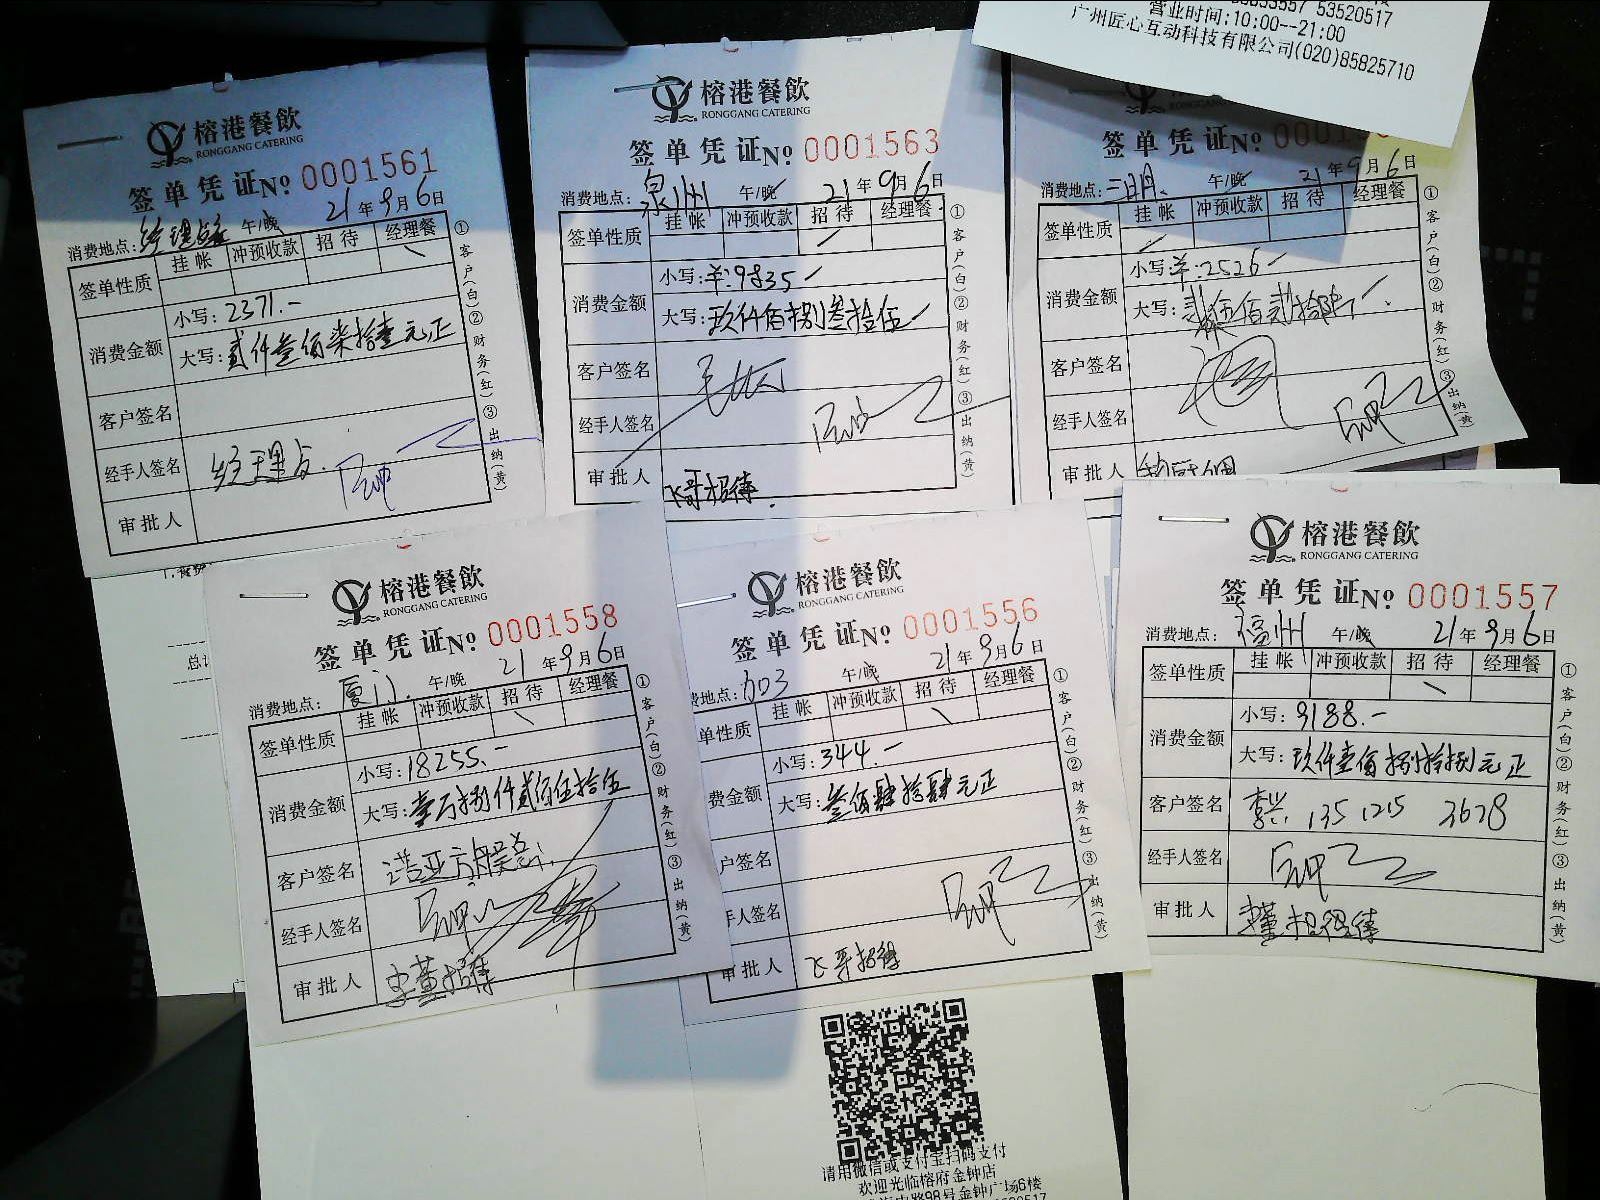 53520517
营业时间:10:00--21:00
广州匠心互动科技有限公司(020)85825710
榕港餐飲
RONGGANG CATERING
签单凭证No 0001561
消费地点: 午/晚 21年9月6日
签单性质 挂帐 冲预收款 招待 经理餐
消费金额 小写:2371.-
大写:贰仟叁佰柒拾壹元正
客户签名
经手人签名
审批人
①客户(白)②财务(红)③出纳(黄)
榕港餐飲
RONGGANG CATERING
签单凭证No 0001563
消费地点:泉州 午/晚 21年9月6日
签单性质 挂帐 冲预收款 招待 经理餐
消费金额 小写:羊:9835-
大写:玖仟佰捌叁拾伍
客户签名
经手人签名
审批人 飞哥招待.
①客户(白)②财务(红)③出纳(黄)
RONGGANG CATERING
签单凭证No
消费地点:三明. 午/晚 21年9月6日
签单性质 挂帐 冲预收款 招待 经理餐
消费金额 小写:羊:2526-
大写:
客户签名
经手人签名
审批人
①客户(白)②财务(红)③出纳(黄)
榕港餐飲
RONGGANG CATERING
签单凭证No 0001558
消费地点:厦门. 午/晚 21年9月6日
签单性质 挂帐 冲预收款 招待 经理餐
消费金额 小写:18255.-
大写:壹万捌仟贰佰伍拾伍
客户签名
经手人签名
审批人 李董招待
①客户(白)②财务(红)③出纳(黄)
榕港餐飲
RONGGANG CATERING
签单凭证No 0001556
费地点: 午/晚 21年9月6日
单性质 挂帐 冲预收款 招待 经理餐
费金额 小写:344.-
大写:叁佰肆拾肆元正
户签名
手人签名
审批人 飞哥招待
①客户(白)②财务(红)③出纳(黄)
榕港餐飲
RONGGANG CATERING
签单凭证No 0001557
消费地点:福州 午/晚 21年9月6日
签单性质 挂帐 冲预收款 招待 经理餐
消费金额 小写:9188.-
大写:玖仟壹佰捌拾捌元正
客户签名 135 1215 3678
经手人签名
审批人
①客户(白)②财务(红)③出纳(黄)
请用微信或支付宝扫码支付
欢迎光临榕府金钟店
中路98号金钟广场6楼